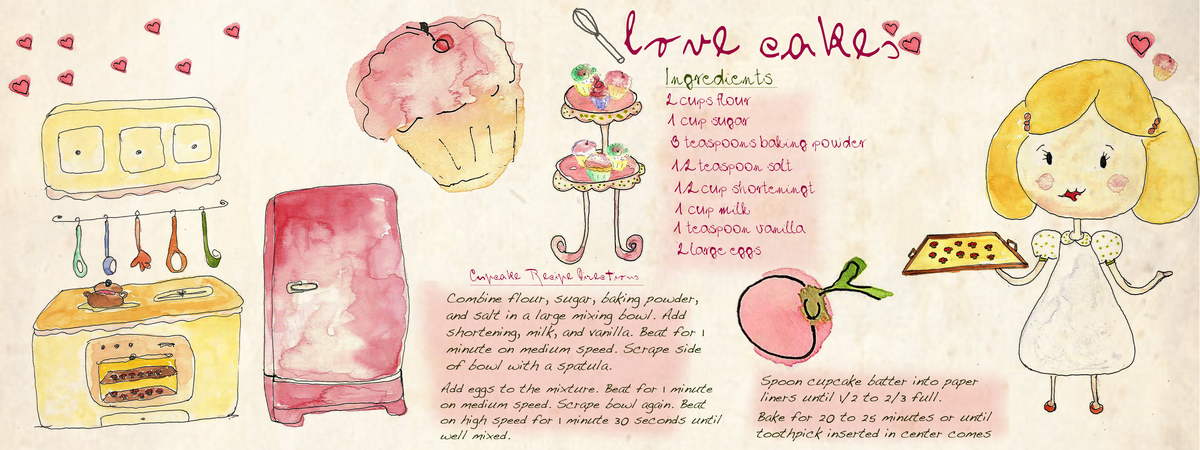 love cakes
Ingredients
2 cups flour
1 cup sugar
3 teaspoons baking powder
1 2 teaspoon salt
1 2 cup shorteningt
1 cup milk
1 teaspoon vanilla
2 large eggs
Cupcake Recipe Directions
Combine flour, sugar, baking powder,
and salt in a large mixing bowl. Add
shortening, milk, and vanilla. Beat for 1
minute on medium speed. Scrape side
of bowl with a spatula.
Add eggs to the mixture. Beat for 1 minute
on medium speed. Scrape bowl again. Beat
on high speed for 1 minute 30 seconds until
well mixed.
Spoon cupcake batter into paper
liners until 1/2 to 2/3 full.
Bake for 20 to 25 minutes or until
toothpick inserted in center comes